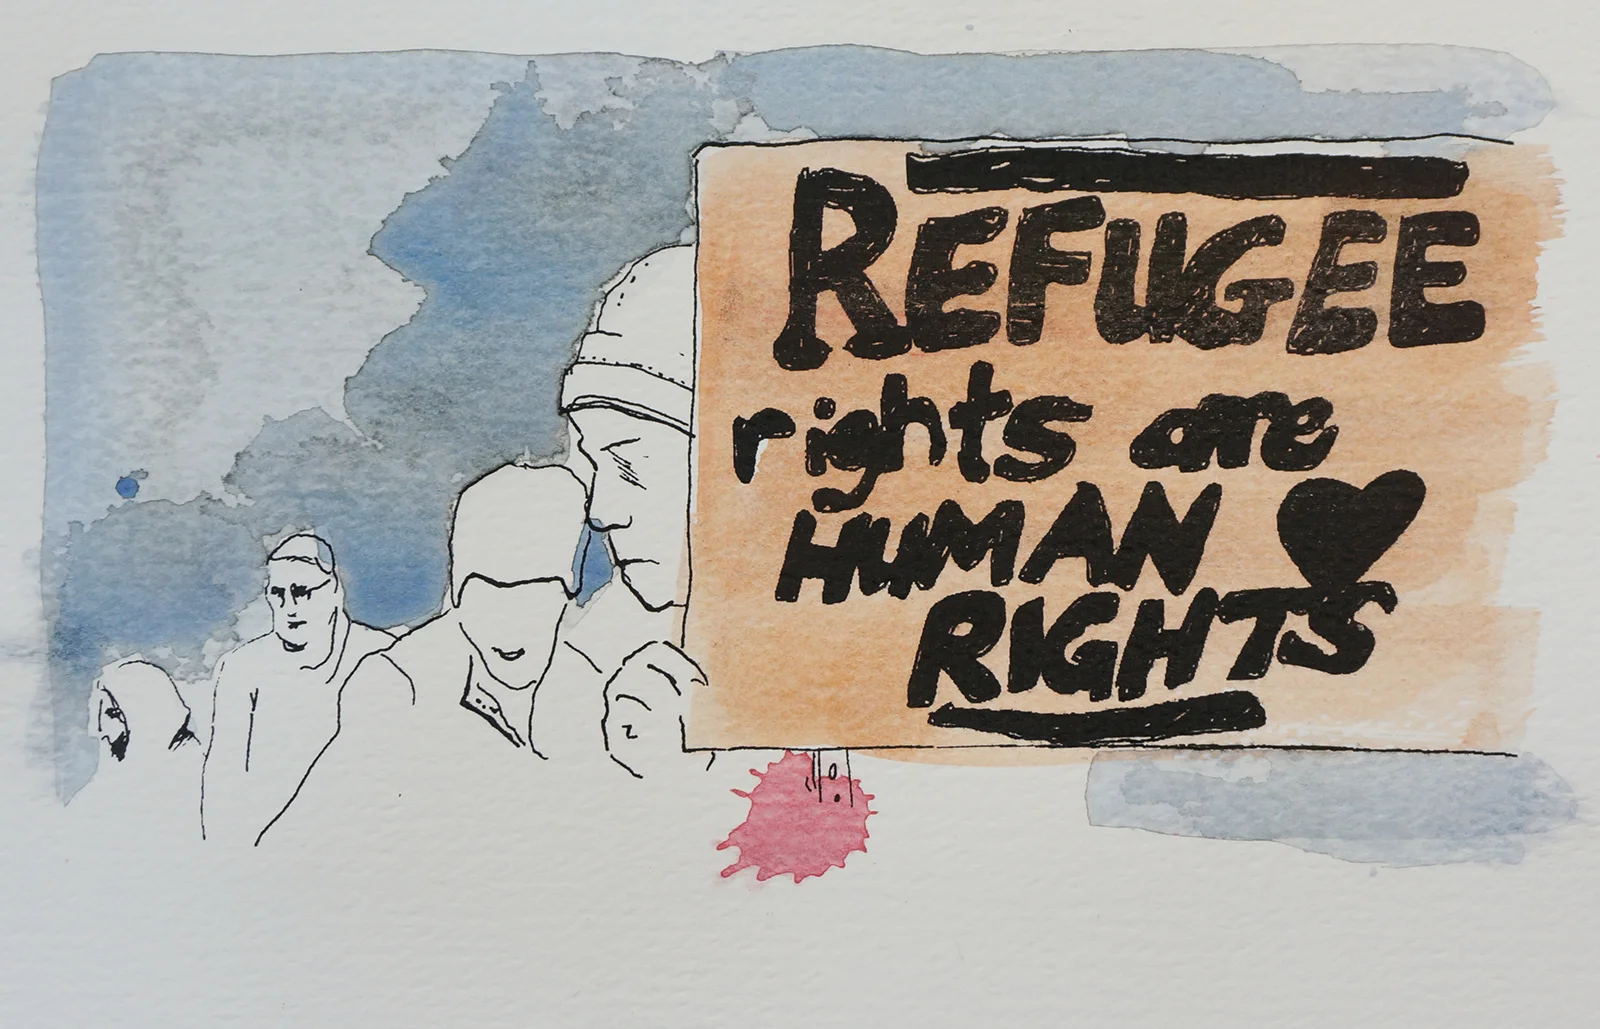 REFUGEE
rights are
HUMAN
RIGHTS